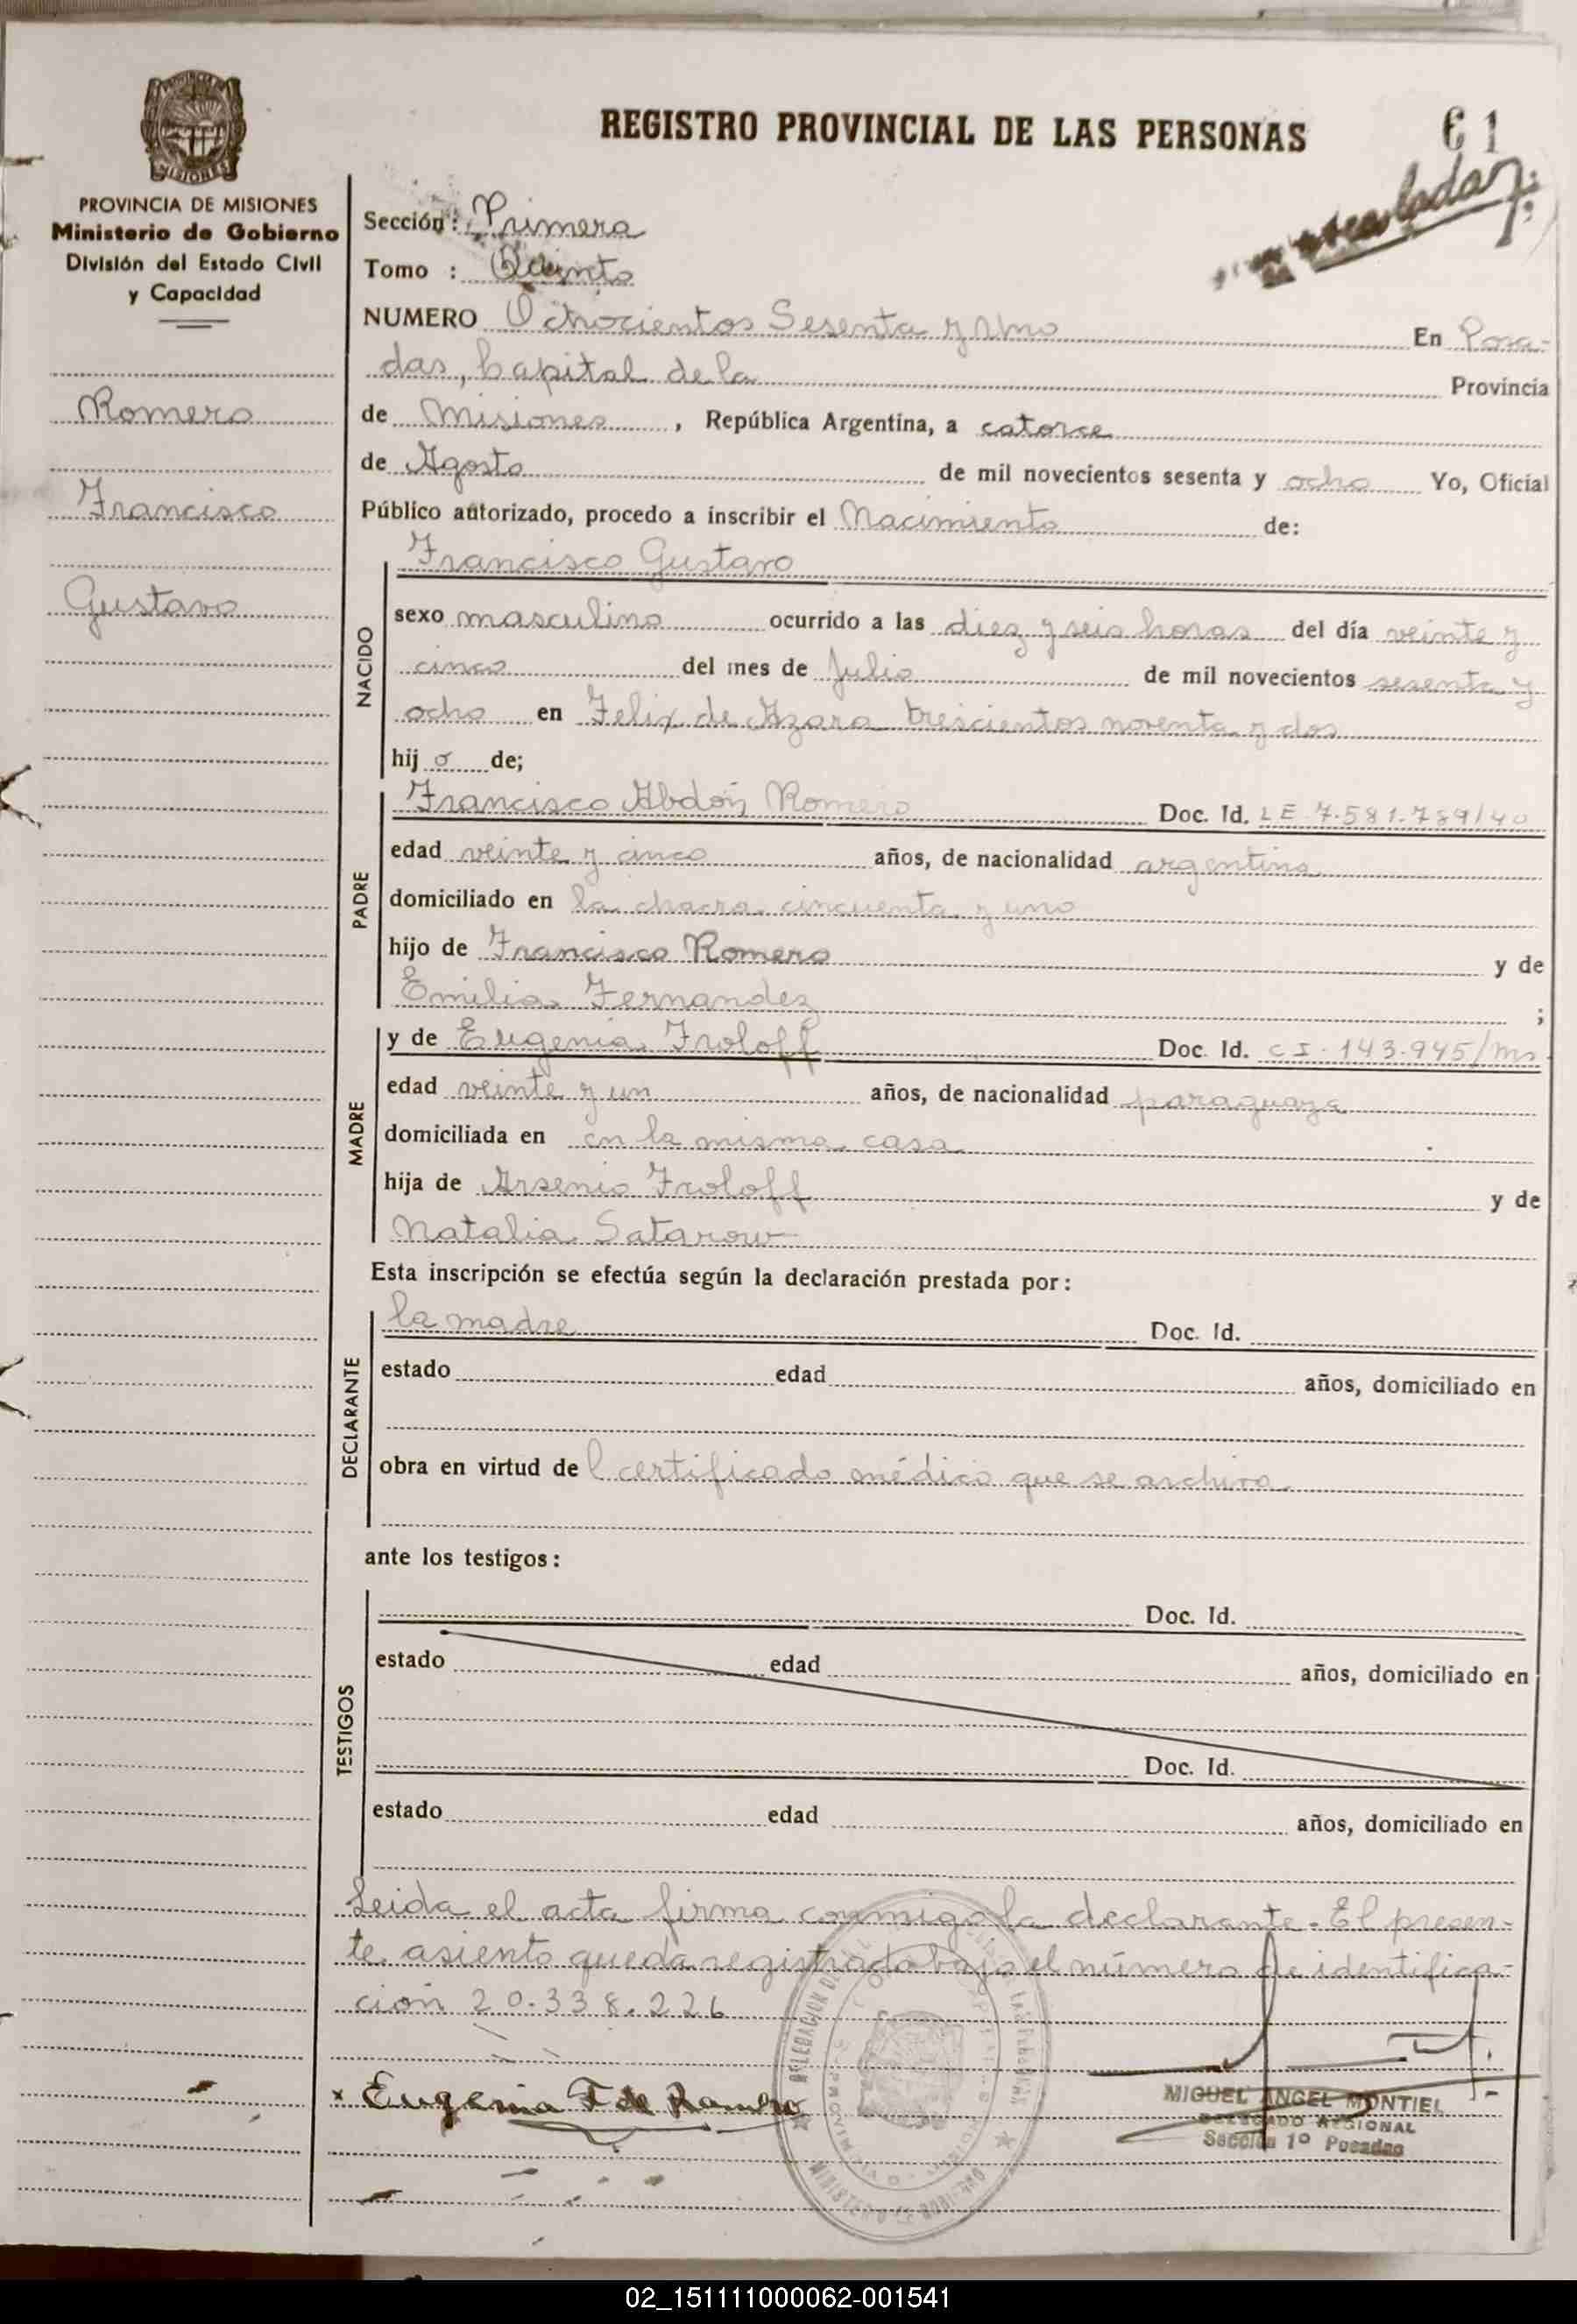 REGISTRO PROVINCIAL DE LAS PERSONAS
61
PROVINCIA DE MISIONES
Ministerio de Gobierno
División del Estado Civil
y Capacidad
Romero
Francisco
Gustavo
Sección: Primera
Tomo : Quinto
NUMERO Ochocientos Sesenta y Uno En Posa-
das, Capital de la Provincia
de Misiones, República Argentina, a catorce
de Agosto de mil novecientos sesenta y ocho Yo, Oficial
Público autorizado, procedo a inscribir el Nacimiento de:
NACIDO
Francisco Gustavo
sexo masculino ocurrido a las diez y seis horas del día veinte y
cinco del mes de Julio de mil novecientos sesenta y
ocho en Felix de Azara trescientos noventa y dos
hij o de;
PADRE
Francisco Abdón Romero Doc. Id. LE 7.581.789/40
edad veinte y cinco años, de nacionalidad argentina
domiciliado en la chacra cincuenta y uno
hijo de Francisco Romero y de
Emilia Fernandez ;
MADRE
y de Eugenia Froloff Doc. Id. CI. 143.945/Ms
edad veinte y un años, de nacionalidad paraguaya
domiciliada en en la misma casa
hija de Arsenio Froloff y de
Natalia Satarow
Esta inscripción se efectúa según la declaración prestada por:
DECLARANTE
la madre Doc. Id.
estado edad años, domiciliado en
obra en virtud del certificado médico que se archiva
ante los testigos:
TESTIGOS
Doc. Id.
estado edad años, domiciliado en
Doc. Id.
estado edad años, domiciliado en
Leida el acta firma conmigo la declarante. El presen-
te asiento queda registrado bajo el número de identifica-
ción 20.338.226
x Eugenia F de Romero
MIGUEL ANGEL MONTIEL
DELEGADO REGIONAL
Sección 1º Posadas
02_151111000062-001541